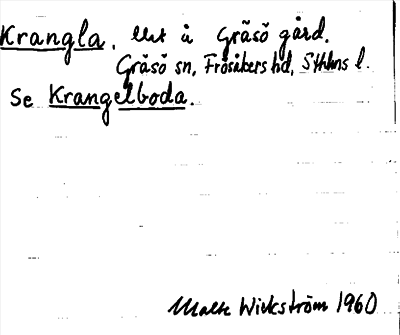 Krangla. Utsk å Gräsö gård.
Gräsö sn, Frösåkers hd, Sthlms l.
Se Krangelboda.
Wickström 1960